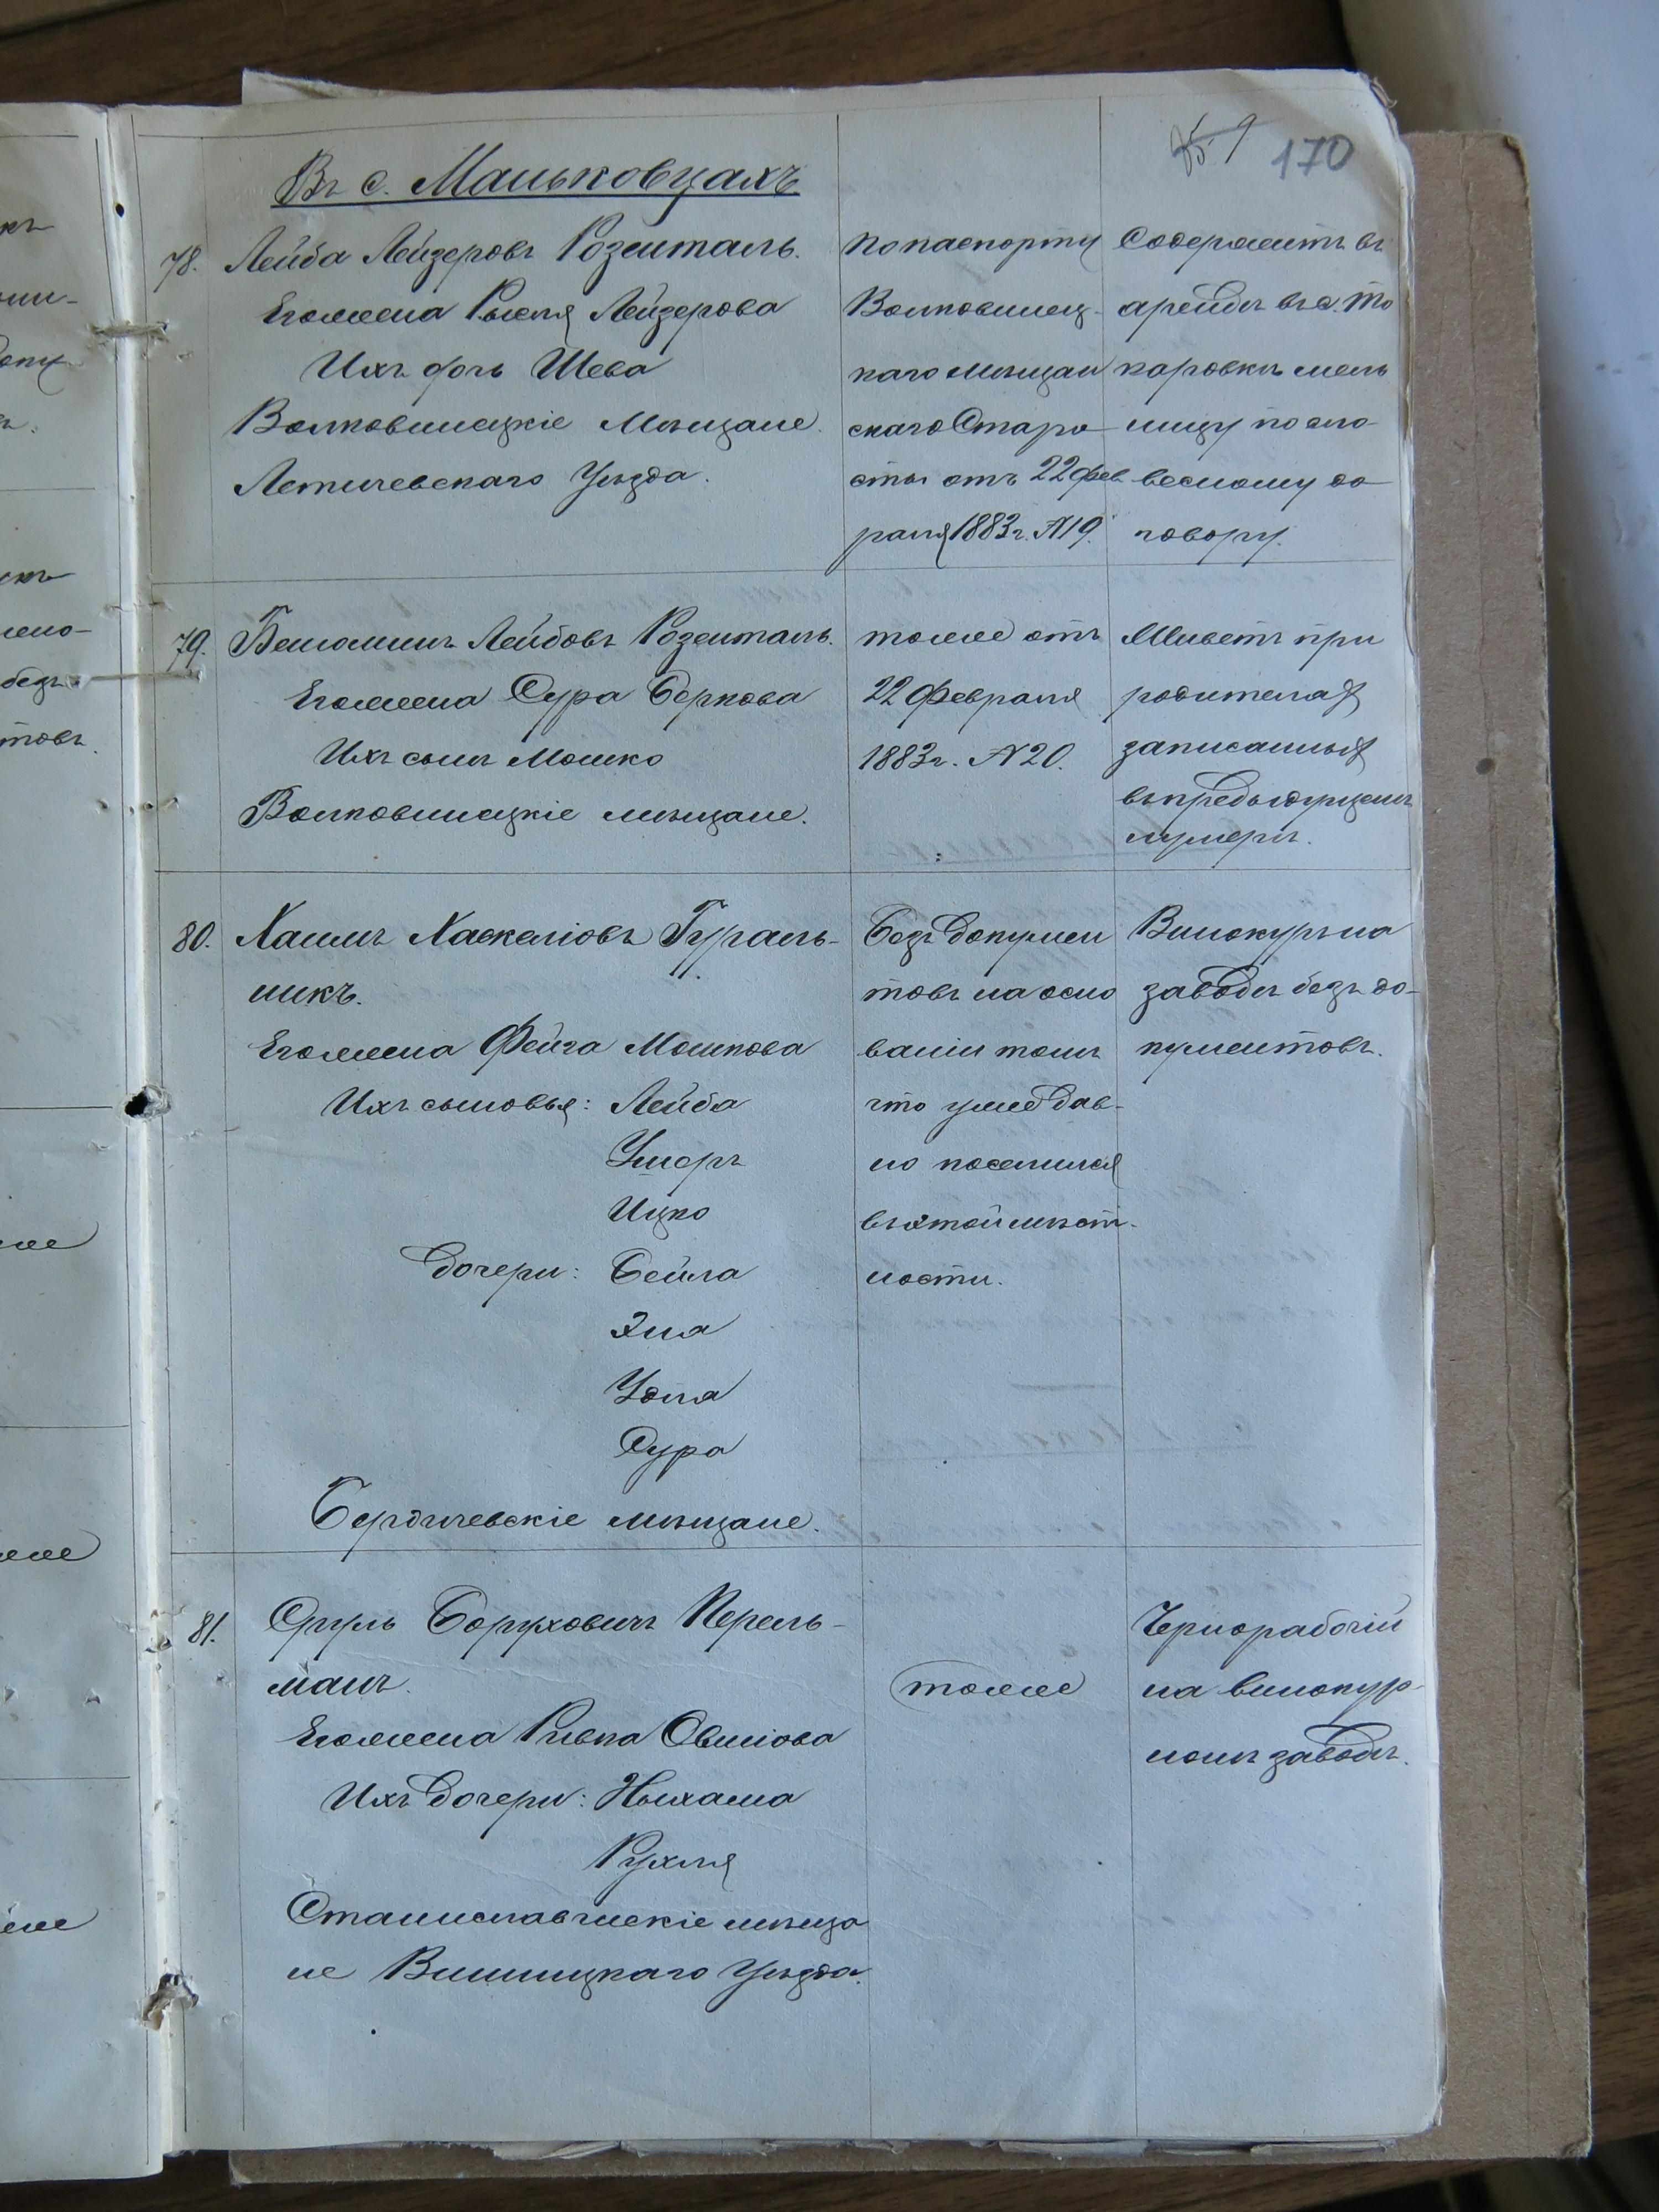 170
Въ с. Маньковцахъ
78. Лейба Лейзеровъ Розенталь.
Его жена Рыся Лейзерова
Ихъ дочь Шева
Волковинецкіе Мѣщане
Летичевскаго Уѣзда.
по паспорту
Волковинец-
каго мѣщан
скаго Старо
сты отъ 22 фев
раля 1883 г. № 19.
Содержитъ въ
арендѣ въ с. То
каровкѣ мель
ницу по сло-
весному до
говору.
79. Беніоминъ Лейбовъ Розенталь.
Его жена Сура Беркова
Ихъ сынъ Мошко
Волковинецкіе мѣщане.
тоже отъ
22 февраля
1883 г. № 20.
Живетъ при
родителях
записанных
въ предыдущемъ
нумерѣ.
80. Хаимъ Хаскеліовъ Гураль-
никъ.
Его жена Фейга Мошкова
Ихъ сыновья: Лейба
Ушеръ
Ицко
дочери: Бейла
Эня
Удля
Сура
Бердичевскіе мѣщане.
Безъ докумен
товъ на осно
ваніи томъ
что уже дав-
но поселился
въ этой мѣст-
ности.
Винокуръ на
заводѣ безъ до-
кументовъ.
81. Сруль Боруховичъ Перель-
манъ.
Его жена Ривка Овшіова
Ихъ дочери: Ныхама
Рухля
Станиславчискіе мѣща
не Винницкаго Уѣзда.
тоже
Чернорабочій
на винокур-
номъ заводѣ.